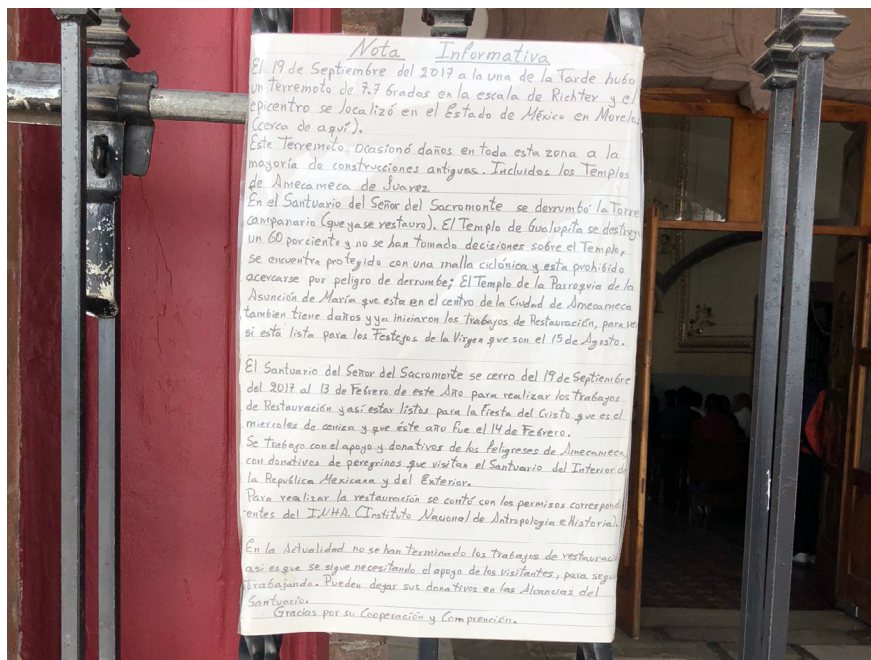 Nota Informativa
El 19 de Septiembre del 2017 a la una de la Tarde hubo
un Terremoto de 7.7 Grados en la escala de Richter y el
epicentro se localizó en el Estado de México en Morelos
(cerca de aquí).
Este Terremoto ocasionó daños en toda esta zona a la
mayoría de construcciones antiguas. Incluidos los Templos
de Amecameca de Juarez.
En el Santuario del Señor del Sacromonte se derrumbó la Torre
campanario (que ya se restauro). El Templo de Gualupita se destruyo
un 60 porciento y no se han tomado decisiones sobre el Templo,
se encuentra protegido con una malla ciclónica y esta prohibido
acercarse por peligro de derrumbe; El Templo de la Parroquia de la
Asunción de María que esta en el centro de la Ciudad de Amecameca
tambien tiene daños y ya iniciaron los trabajos de Restauración, para ver
si esta lista para los Festejos de la Virgen que son el 15 de Agosto.
El Santuario del Señor del Sacromonte se cerro del 19 de Septiembre
del 2017 al 13 de Febrero de este Año para realizar los trabajos
de Restauración y asi estar listos para la fiesta del Cristo que es el
miercoles de ceniza y que éste año fue el 14 de Febrero.
Se trabajo con el apoyo y donativos de los feligreses de Amecameca,
con donativos de peregrinos que visitan el Santuario del Interior de
la Republica Mexicana y del Exterior.
Para realizar la restauración se contó con los permisos correspondi
-entes del INHA. (Instituto Nacional de Antropología e Historia).
En la Actualidad no se han terminado los trabajos de restauració
asi es que se sigue necesitando el apoyo de los visitantes, para segui
trabajando. Pueden dejar sus donativos en las Alcancías del
Santuario.
Gracias por su Cooperación y Comprención.